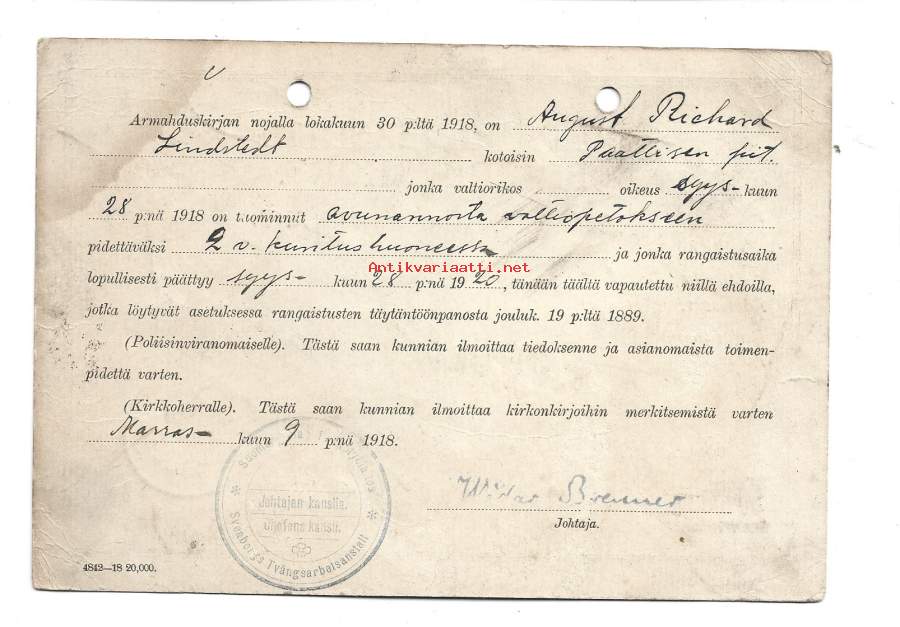 Armahduskirjan nojalla lokakuun 30 p:ltä 1918, on August Richard
Lindstedt kotoisin Paattisen pit.
jonka valtiorikos oikeus syys-kuun
28 p:nä 1918 on tuominnut avunannosta valtiopetokseen
pidettäväksi 2 v. kuritushuoneessa ja jonka rangaistusaika
Antikvariaatti.net
lopullisesti päättyy syys- kuun 28 p:nä 1920, tänään täältä vapautettu niillä ehdoilla,
jotka löytyvät asetuksessa rangaistusten täytäntöönpanosta jouluk. 19 p:ltä 1889.
(Poliisinviranomaiselle). Tästä saan kunnian ilmoittaa tiedoksenne ja asianomaista toimen-
pidettä varten.
(Kirkkoherralle). Tästä saan kunnian ilmoittaa kirkonkirjoihin merkitsemistä varten
Marras- kuun 9 p:nä 1918.
Johtajan kanslia.
Chefens kansli.
Sveaborgs Tvångsarbetsanstalt
Brenner
Johtaja.
4842—18 20,000.